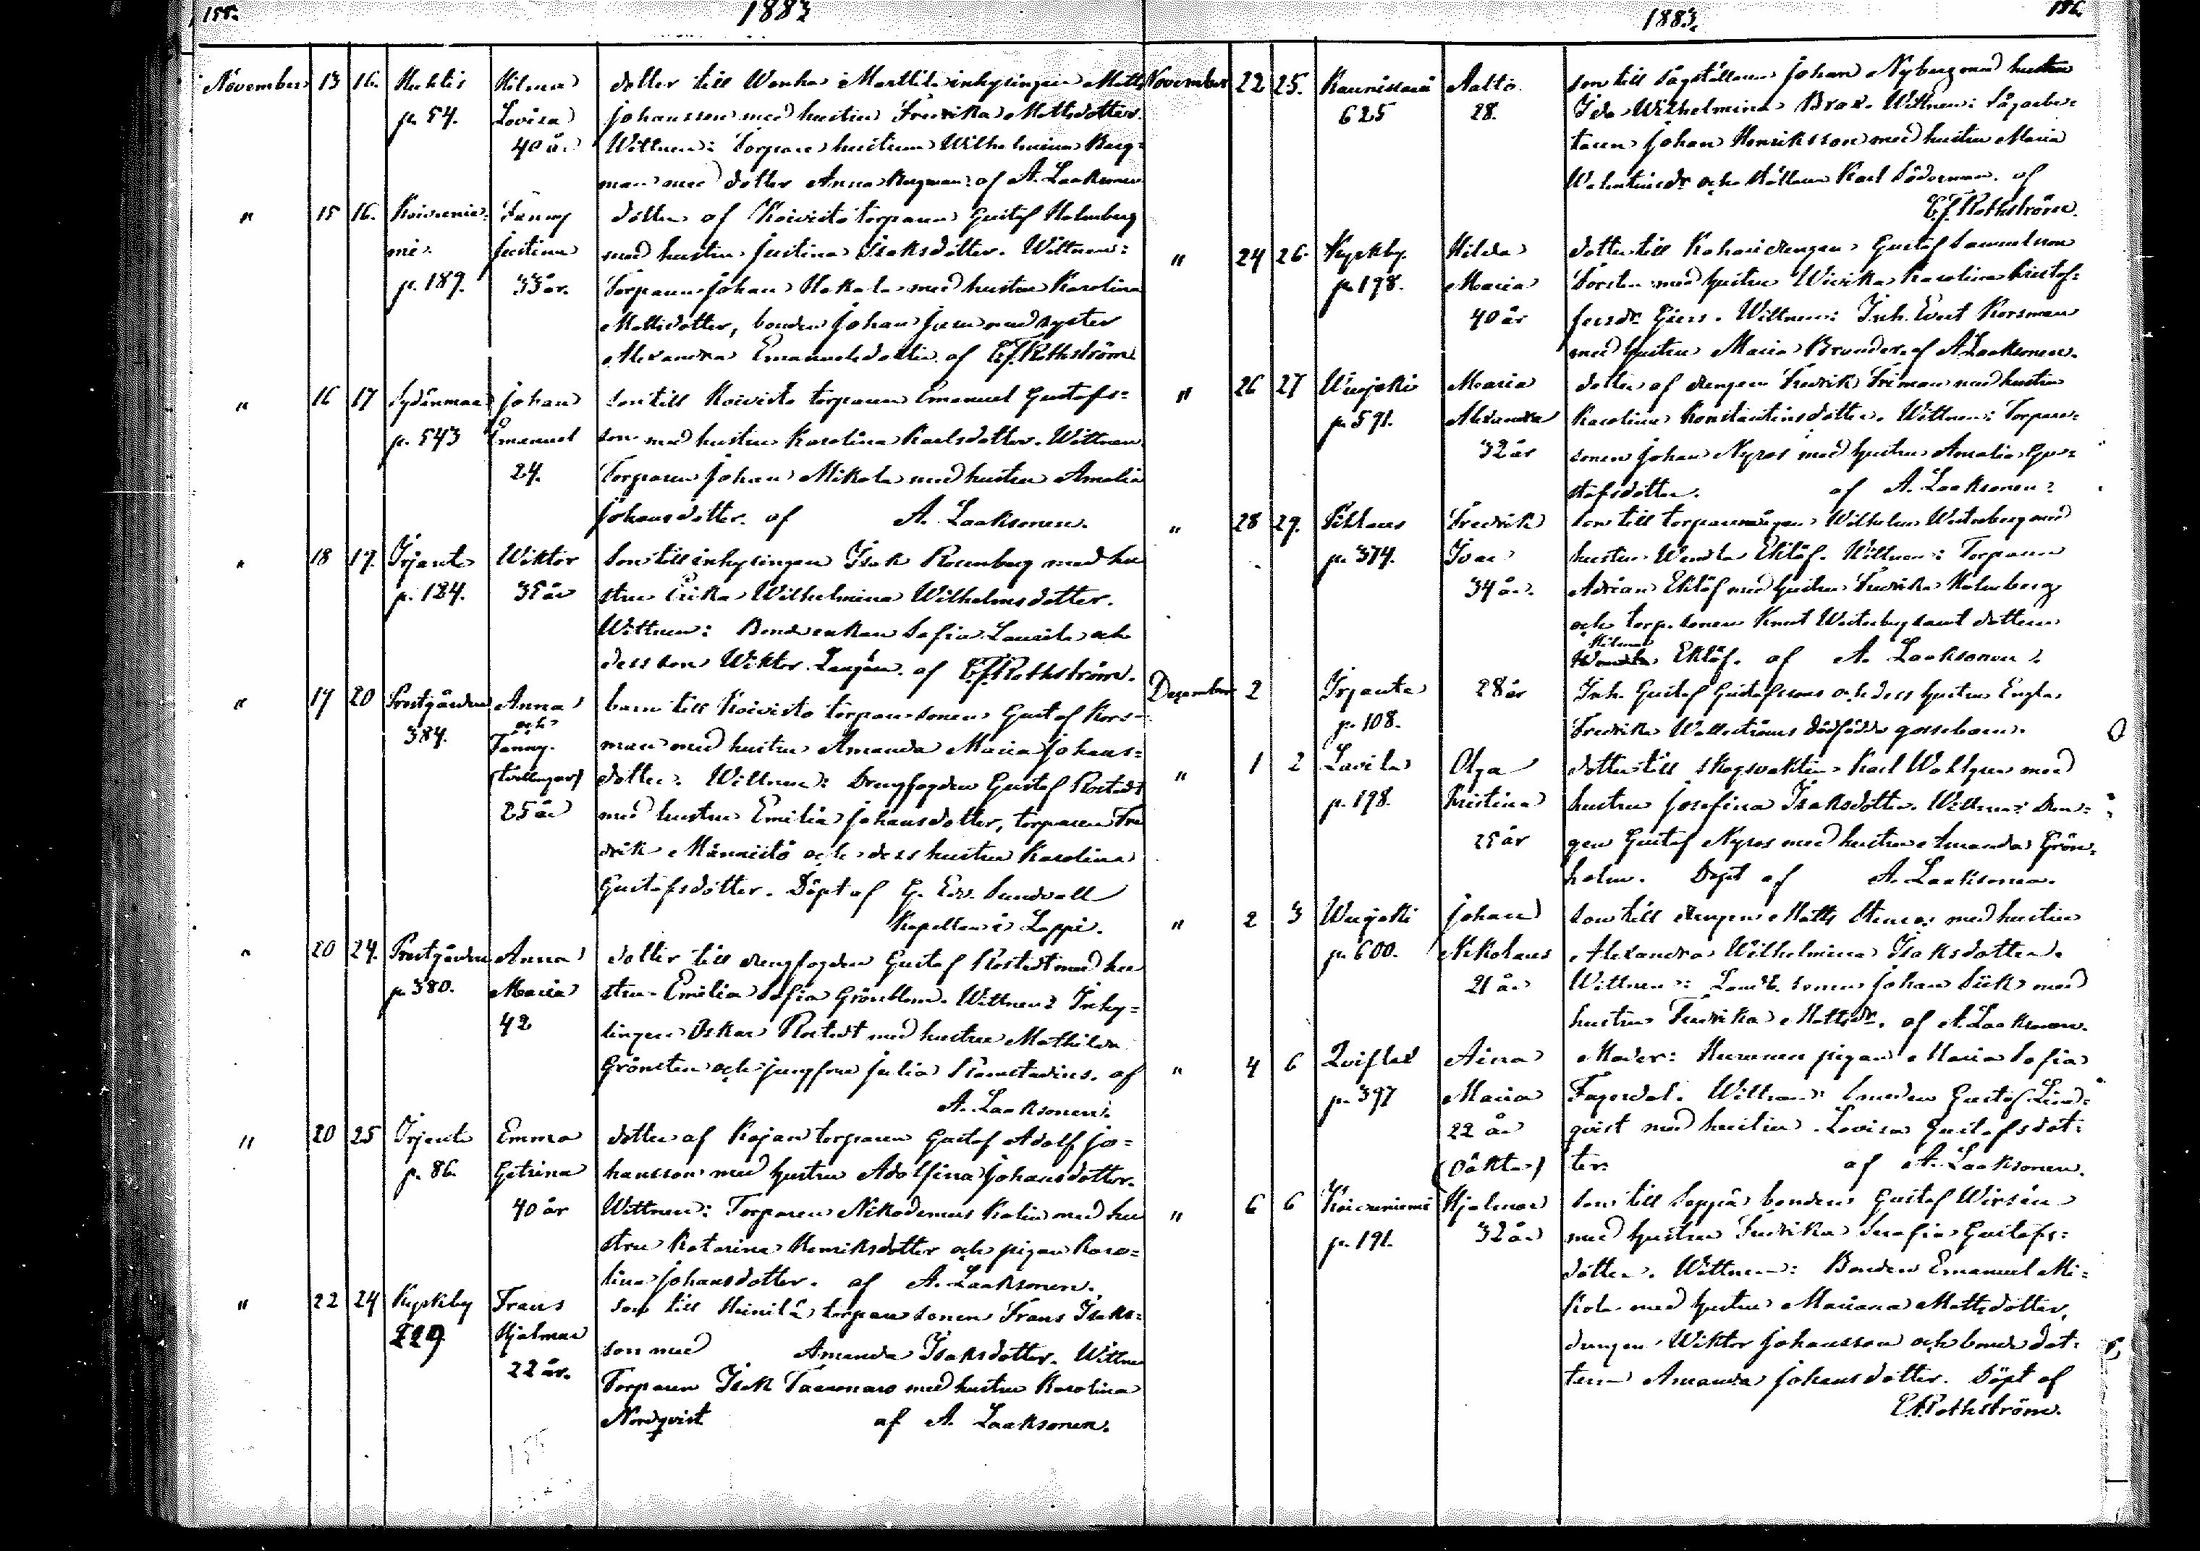 155.
1883
November 13 16. Huhtis Hilma dotter till Wanha i Marttila inhysingen Matts
p. 54. Lovisa Johansson med hustru Fredrika Mattsdotter.
40 år Wittnen: Torpare hustrun Wilhelmina Berg=
man med dotter Anna Bergman. af A. Laaksonen
" 15 16. Koivunie= Fanny dotter af Koivisto torparen Gustaf Holmberg
mi. Justina med hustru Justina Isaksdotter. Wittnen:
p. 189. 33 år. Torparen Johan Hakala med hustru Karolina
Mattsdotter, bonden Johan med syster
Alexandra Emanuelsdotter. af E.J. Rothström
" 16 17 Sydänmaa Johan Son till Koivisto torparen Emanuel Gustafs=
p. 543 Emanuel son med hustru Karolina Karlsdotter. Wittnen
24. Torparen Johan Mikola med hustru Amalia
Johansdotter. af A. Laaksonen.
" 18 19. Irjanto Wiktor Son till inhysingen Isak Rosenberg med hu
p. 124. 35 år stru Erika Wilhelmina Wilhelmsdotter.
Wittnen: Bondeenkan Sofia Laurila och
dess son Wiktor. af E.J. Rothström.
" 19 20 Prostgården Anna barn till Koivisto torparesonen Gustaf Kors=
384. och man med hustru Amanda Maria Johans=
Fanny. dotter. Wittnen: Drengfogden Gustaf Rostedt
(tvillingar) med hustru Emilia Johansdotter, torparen Fre
25 år drik Männistö och dess hustru Karolina
Gustafsdotter. Döpt af G. Edv. Sundvall
Kapellan i Lappi.
" 20 24. Prostgården Anna dotter till drengfogden Gustaf Rostedt med hu
p. 380. Maria stru Emilia Sofia Grönblom. Wittnen: Inhy=
42 singen Oskar Rostedt med hustru Mathilda
Grönsten och jungfrun Julia af
A. Laaksonen.
" 20 25 Irjanto Emma dotter af Kojan torparen Gustaf Adolf Jo=
p. 86. Getrina hansson med hustru Adolfina Johansdotter.
40 år Wittnen: Torparen Nikodemus Kalin med hu
stru Katarina Henriksdotter och pigan Karo=
lina Johansdotter. af A. Laaksonen.
" 22 24 Kyrkby Frans son till Heinilä torparesonen Frans Isaks=
229 Hjalmar son med Amanda Isaksdotter. Wittne
22 år. Torparen Isak med hustru Karolina
Nordqvist af A. Laaksonen.
1883.
156.
November 22 25. Kaunissaari Aalto son till Sågställaren Johan Nyberg med hustru
625 28. Ida Wilhelmina Brax. Wittnen: Sågarbe=
taren Johan Henriksson med hustru Maria
och Karl Söderman. af
E.J. Rothström.
" 24 26. Kyrkby. Hilda dotter till drengen Gustaf Samuelsson
p. 178. Maria med hustru Wivika Karolina Kristof=
40 år fersdr. Wittnen: Inh. Evert Korsman
med hustru Maria Brander. af A. Laaksonen.
" 26 27 Wuojoki Maria dotter af drengen Fredrik Friman med hustru
p. 591. Alexandra Karolina Konstantinsdotter. Wittnen: Torpare=
32 år sonen Johan Nyros med hustru Amalia Gu=
stafsdotter. af A. Laaksonen.
" 28 29. Fredrik son till torparemågen Wilhelm Westerberg med
p. 374. Ivar hustru Wendla Eklöf. Wittnen: Torparen
34 år. Adrian Eklöf med hustru Fredrika Holmberg
och torp. sonen Knut Westerberg samt dottern
Hilma
Eklöf. af A. Laaksonen.
December 2 Irjanto 28 år Inh. Gustaf Gustafssons och dess hustru Engla
p. 108. Fredrika Wallströms dödfödda gossebarn.
" 1 2 Lavila Olga dotter till skogsvaktin Karl Wahlgren med
p. 198. Kristina hustru Josefina Isaksdotter. Wittnen: Dren=
25 år gen Gustaf Nyros med hustru Amanda Grön=
holm. Döpt af A. Laaksonen.
" 2 3 Wuojoki Johan son till drengen Matts med hustru
p. 600. Nikolaus Alexandra Wilhelmina Isaksdotter.
21 år Wittnen: sonen Johan med
hustru Fredrika Mattsdr. af A. Laaksonen.
" 4 6 Qvifled Aina Moder: pigan Maria Sofia
p. 397 Maria Fagerdal. Wittnen: Smeden Gustaf Lind=
22 år qvist med hustru Lovisa Gustafsdot=
(oäkta) ter. af A. Laaksonen.
" 6 6 Koivuniemi Hjalmar son till Seppä bonden Gustaf Wirsén
p. 191. 32 år med hustru Fredrika Serafia Gustafs=
dotter. Wittnen: Bonden Emanuel Mi=
kola med hustru Mariana Mattsdotter,
drengen Wiktor Johansson och bonde dot=
tern Amanda Johansdotter. Döpt af
E.J. Rothström.